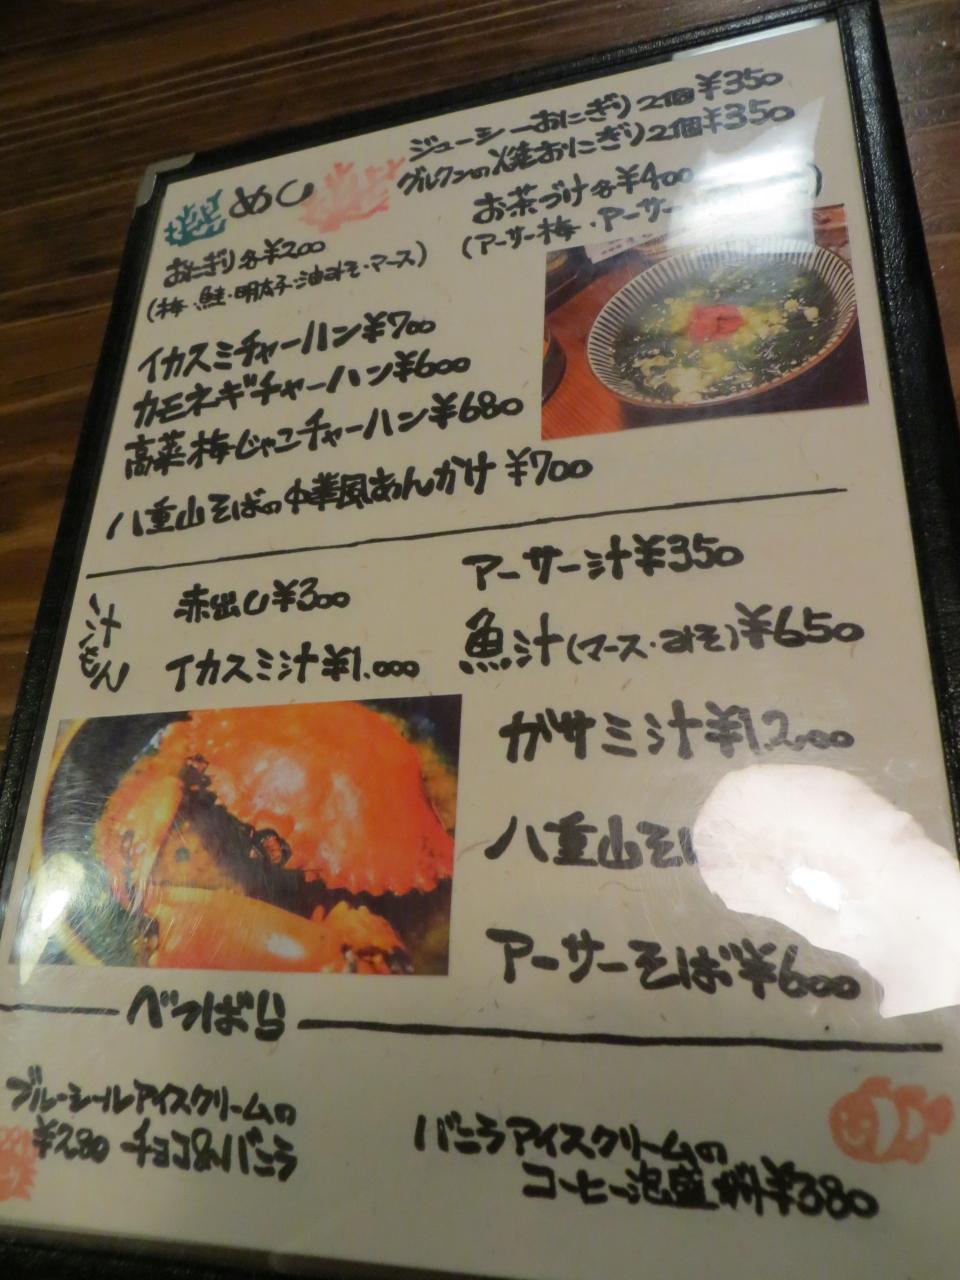 めし
おにぎり各¥200
(梅・鮭・明太子・油みそ・マース)
ジューシーおにぎり2個¥350
グルクンの焼おにぎり2個¥350
お茶づけ各¥400
(アーサー梅・アーサー
イカスミチャーハン¥700
カモネギチャーハン¥600
高菜梅じゃこチャーハン¥680
八重山そばの中華風あんかけ ¥700
汁もん
赤出し¥300
イカスミ汁¥1.000
アーサー汁¥350
魚汁(マース・みそ)¥650
ガサミ汁¥1.200
八重山そ
アーサーそば¥600
べつばら
ブルーシールアイスクリームの
¥280 チョコ&バニラ
バニラアイスクリームの
コーヒー泡盛 ¥380